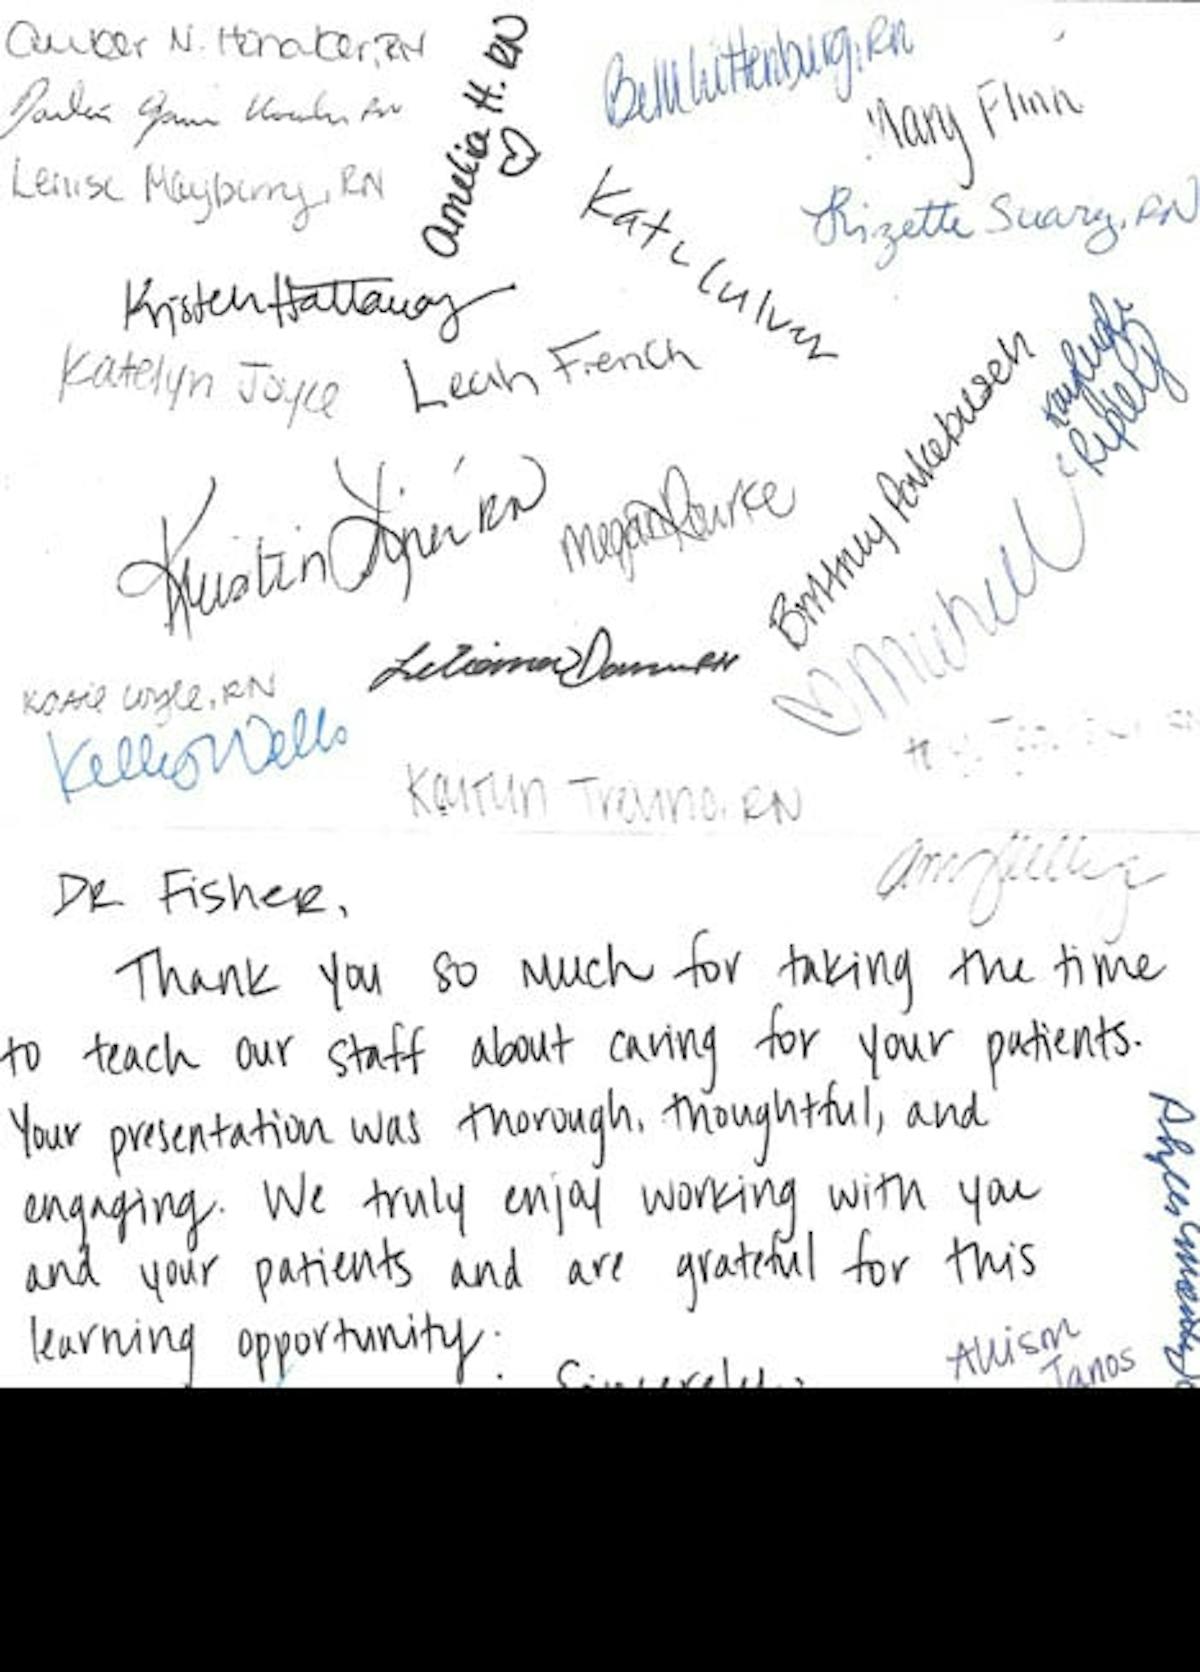 Amber N. Honaker, RN
Amelia H. RN
Beth Wittenburg, RN
Mary Flinn
Lenise Mayberry, RN
Lizette Suarez, RN
Kristen Hattaway
Katelyn Joyce
Leah French
Ripley
Kristin RN
Megan Rourke
Brittney
Michell
RN
Katie Coyle, RN
Kelley Wells
Kaitlin Traino, RN
Amy
DR Fisher,
Thank you so much for taking the time
to teach our staff about caring for your patients.
Your presentation was thorough, thoughtful, and
engaging. We truly enjoy working with you
and your patients and are grateful for this
learning opportunity.
Sincerely,
Allison
Janos